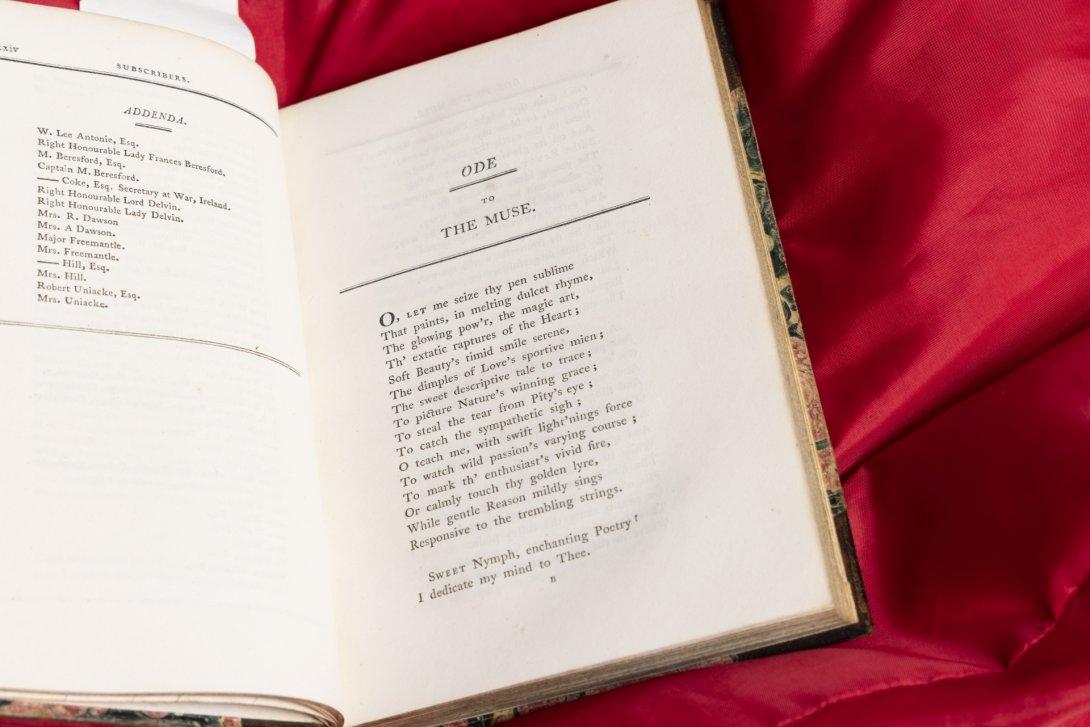 xxiv
SUBSCRIBERS.
ADDENDA.
W. Lee Antonie, Esq.
Right Honourable Lady Frances Beresford.
M. Beresford, Esq.
Captain M. Beresford.
—— Coke, Esq. Secretary at War, Ireland.
Right Honourable Lord Delvin.
Right Honourable Lady Delvin.
Mrs. R. Dawson
Mrs. A Dawson.
Major Freemantle.
Mrs. Freemantle.
—— Hill, Esq.
Mrs. Hill.
Robert Uniacke, Esq.
Mrs. Uniacke.
ODE
TO
THE MUSE.
O, LET me seize thy pen sublime
That paints, in melting dulcet rhyme,
The glowing pow'r, the magic art,
Th' extatic raptures of the Heart;
Soft Beauty's timid smile serene,
The dimples of Love's sportive mien;
The sweet descriptive tale to trace;
To picture Nature's winning grace;
To steal the tear from Pity's eye;
To catch the sympathetic sigh;
O teach me, with swift light'nings force
To watch wild passion's varying course;
To mark th' enthusiast's vivid fire,
Or calmly touch thy golden lyre,
While gentle Reason mildly sings
Responsive to the trembling strings.
SWEET Nymph, enchanting Poetry!
I dedicate my mind to Thee.
B